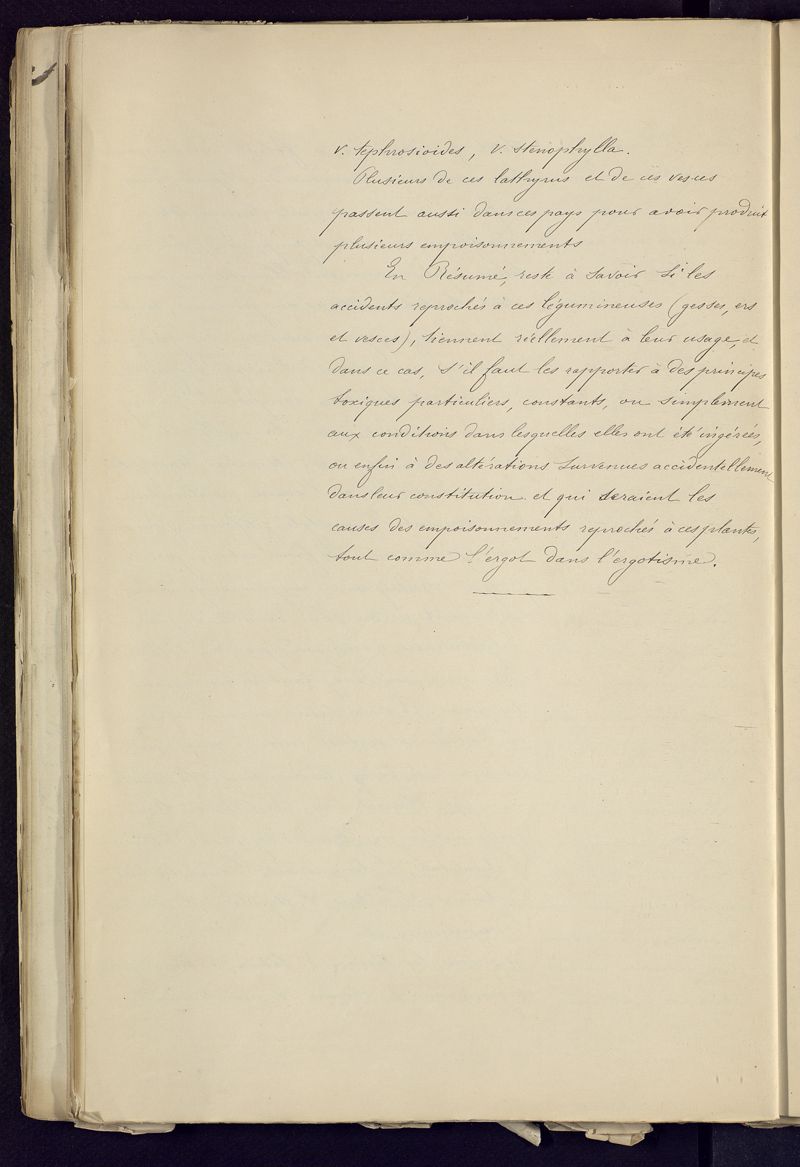 v. tephrosioides, v. stenophylla.
Plusieurs de ces lathyrus et de ces vesces
passent aussi dans ces pays pour avoir produit
plusieurs empoisonnements
En Résumé, reste à savoir si les
accidents reprochés à ces légumineuses (gesses, ers
et vesces), tiennent réellement à leur usage, et
dans ce cas, s'il faut les rapporter à des principes
toxiques particuliers, constants, ou simplement
aux conditions dans lesquelles elles ont été ingérées,
ou enfin à des altérations survenues accidentellement
dans leur constitution et qui seraient les
causes des empoisonnements reprochés à ces plantes,
tout comme l'ergot dans l'ergotisme.